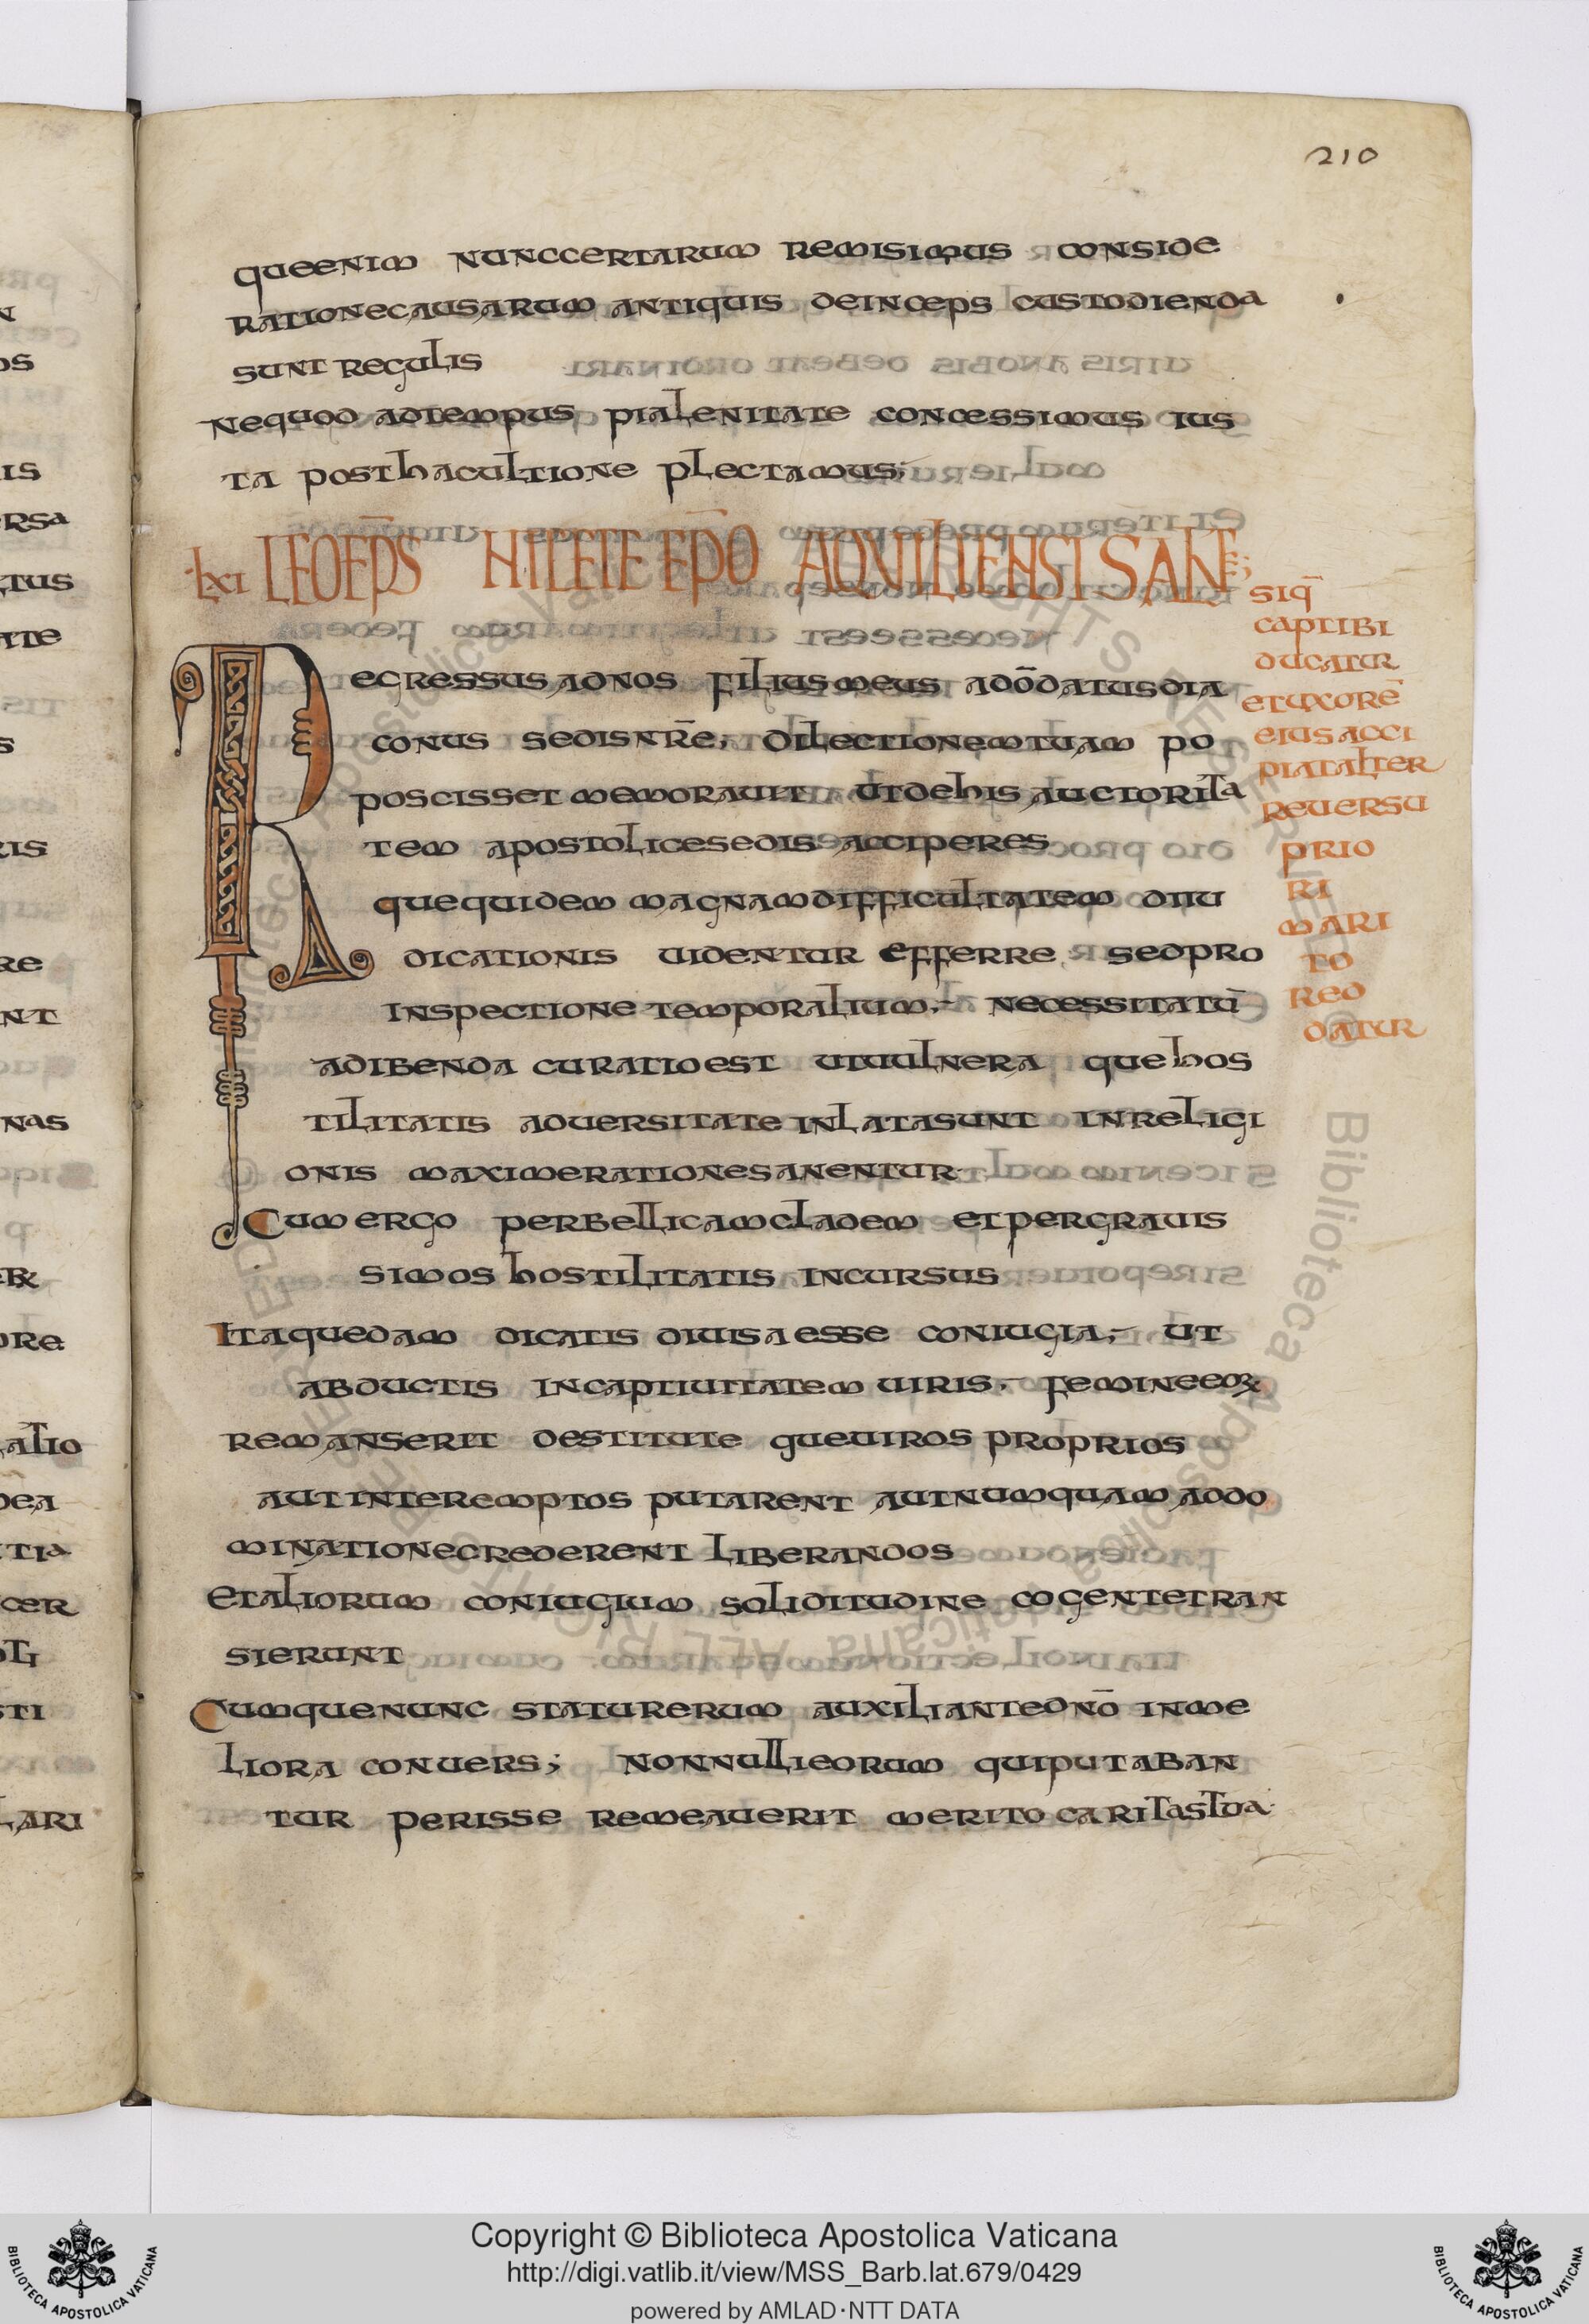 210
queenim nunccertarum remisimus conside
rationecausarum antiquis deinceps custodienda
sunt regulis
nequod adtempus pialenitate concessimus ius
ta posthacultione plectamus;
lxi LEO EP̄S NICETE EP̄O AQUILIENSI SALT̄;
siq̄
captibi
ducatur
etuxorē
eiusacci
piatalter
reversu
prio
ri
mari
to
red
datur
Regressus adnos filiusmeus adōdatusdia
conus sedisnr̄e, dilectionemtuam po
poscisset memorauit utdehis auctorita
tem apostolicesedis acciperes
quequidem magnamdifficultatem diiu
dicationis uidentur efferre sedpro
inspectione temporalium,- necessitatū
adibenda curatioest utuulnera quehos
tilitatis aduersitate inlatasunt inreligi
onis maximerationesanentur
Cum ergo perbellicamcladem etpergrauis
simos hostilitatis incursus
Itaquedam dicatis diuisaesse coniugia,- ut
abductis incaptiuitatem uiris,- femineeoꝝ
remanserit destitute queuiros proprios
autinteremptos putarent autnumquam addo
minationecrederent liberandos
etaliorum coniugium soliditudine cogentetran
sierunt
Cumquenunc staturerum auxiliantednō inme
liora conuers; nonnullieorum quiputaban
tur perisse remeauerit merito caritastua
Copyright © Biblioteca Apostolica Vaticana
http://digi.vatlib.it/view/MSS_Barb.lat.679/0429
powered by AMLAD·NTT DATA
BIBLIOTECA APOSTOLICA VATICANA
BIBLIOTECA APOSTOLICA VATICANA